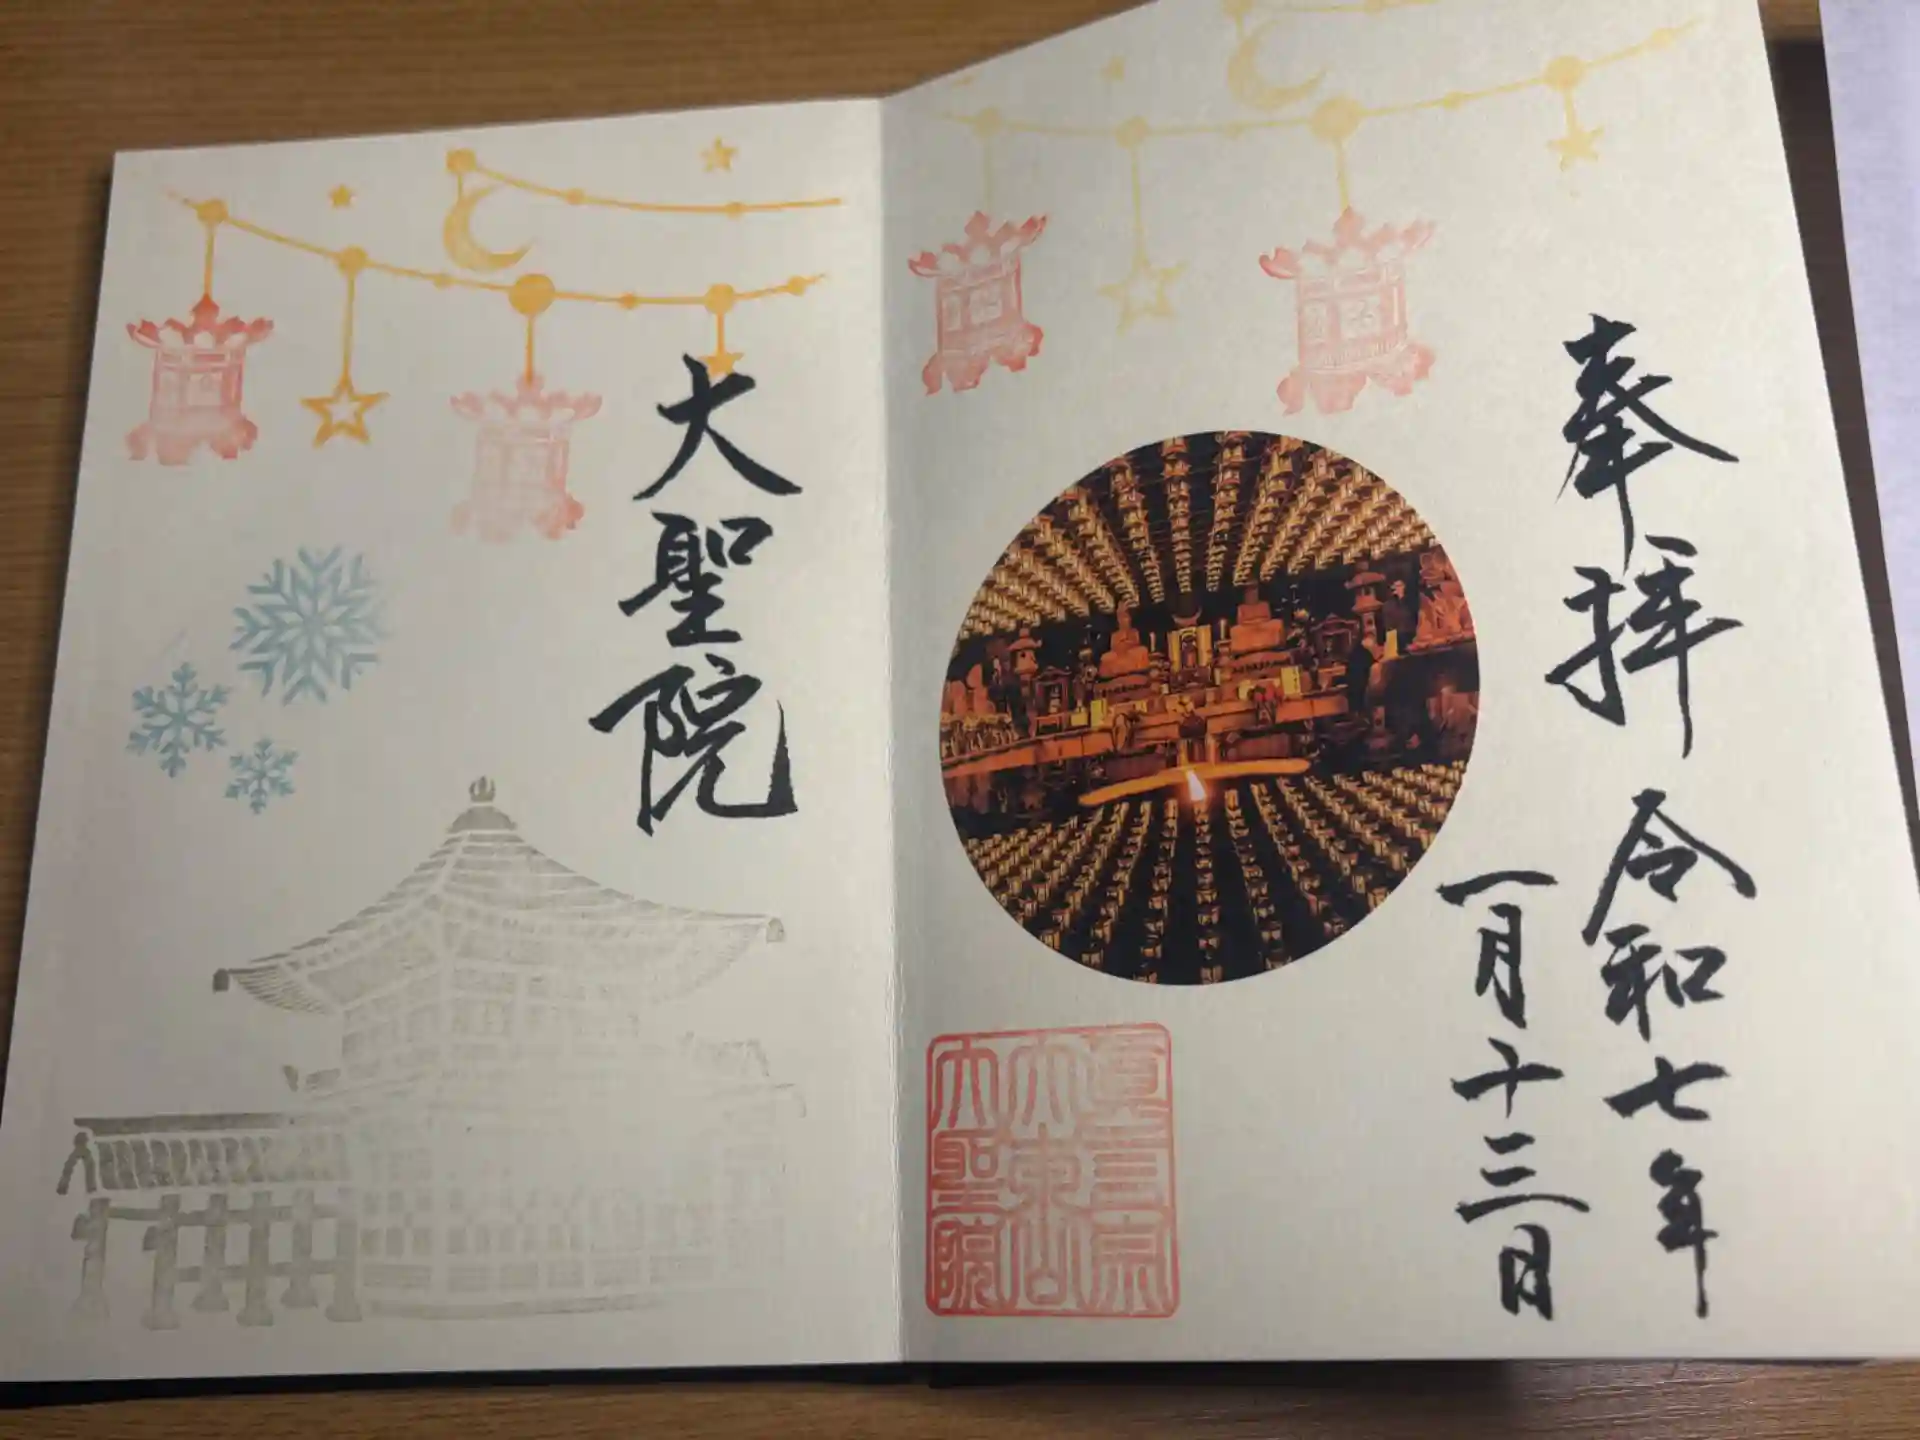 奉拝 令和七年
一月十三日
眞言宗
大東山
大聖院
大聖院